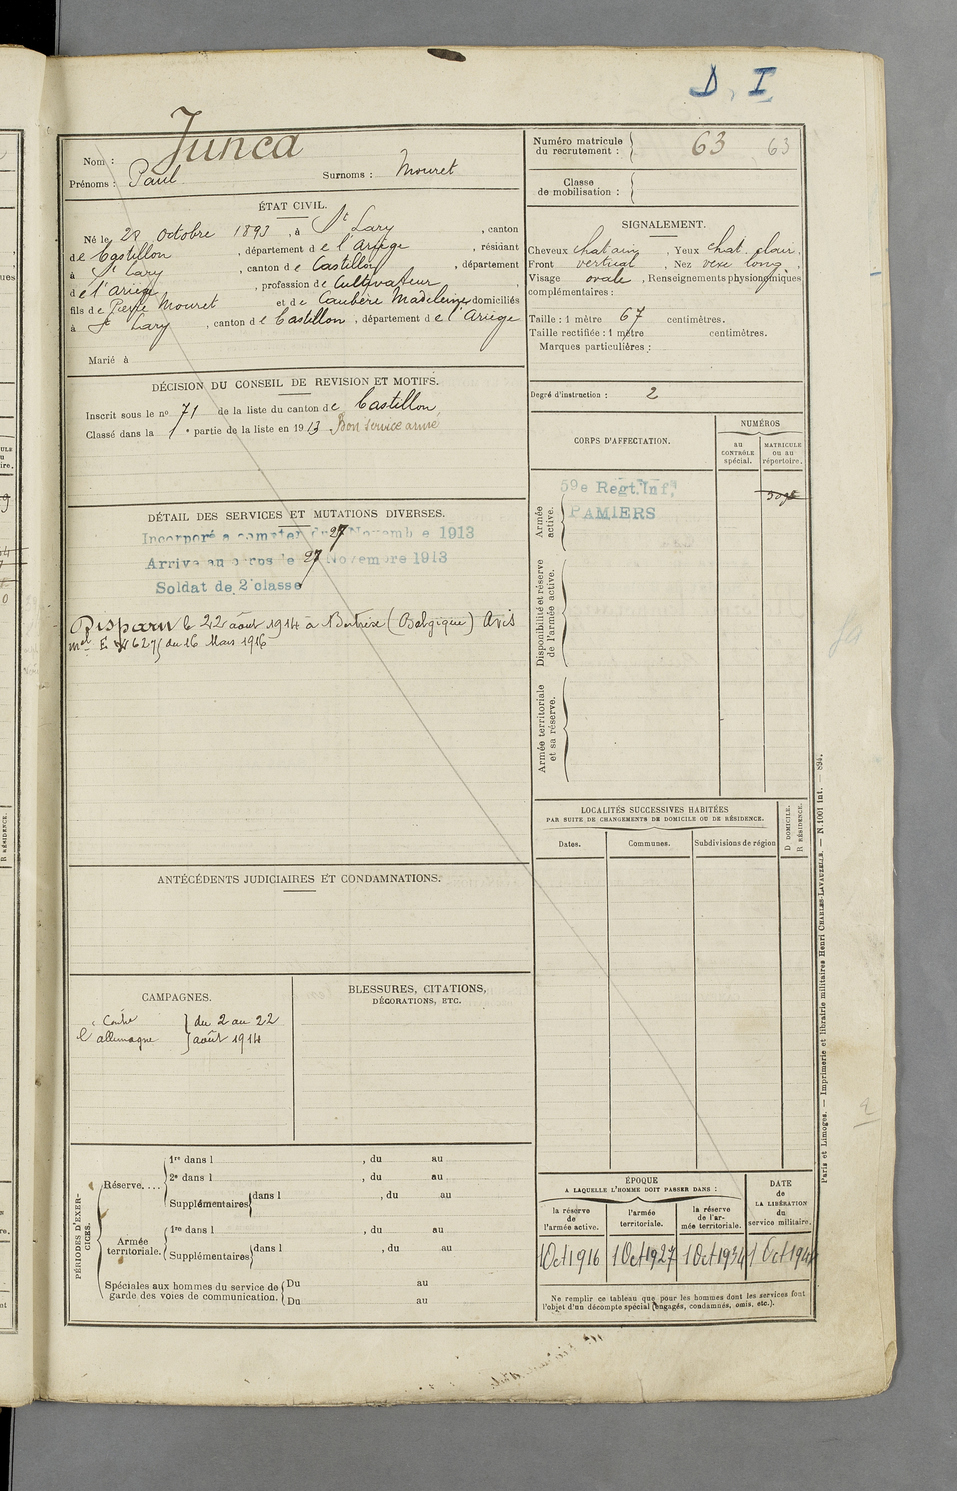 D. I
Nom : Junca
Prénoms : Paul Surnoms : Mouret
Numéro matricule du recrutement : 63 63
Classe de mobilisation :
ÉTAT CIVIL.
Né le 28 octobre 1893, à St Lary, canton
de Castillon, département de l'Ariège, résidant
à St Lary, canton de Castillon, département
de l'Ariège, profession de Cultivateur,
fils de Pierre Mouret et de Caubère Madeleine, domiciliés
à St Lary, canton de Castillon, département de l'Ariège
Marié à
SIGNALEMENT.
Cheveux chatain, Yeux chat. clair,
Front vertical, Nez vexe long,
Visage ovale, Renseignements physionomiques
complémentaires :
Taille : 1 mètre 67 centimètres.
Taille rectifiée : 1 mètre centimètres.
Marques particulières :
Degré d'instruction : 2
DÉCISION DU CONSEIL DE REVISION ET MOTIFS.
Inscrit sous le no 71 de la liste du canton de Castillon
Classé dans la 1e partie de la liste en 1913. Bon service armé
CORPS D'AFFECTATION.
NUMÉROS
au CONTRÔLE spécial.
MATRICULE ou au répertoire.
Armée active.
59e Regt. Inf,
PAMIERS
Disponibilité et réserve de l'armée active.
Armée territoriale et sa réserve.
DÉTAIL DES SERVICES ET MUTATIONS DIVERSES.
Incorporé a compter du 27 Novembre 1913
Arrive au corps le 27 Novembre 1913
Soldat de 2e classe
Disparu le 22 août 1914 à Bertrix (Belgique) Avis
mel E W 6275 du 16 Mars 1916
LOCALITÉS SUCCESSIVES HABITÉES
PAR SUITE DE CHANGEMENTS DE DOMICILE OU DE RÉSIDENCE.
Dates. Communes. Subdivisions de région
D DOMICILE.
R RÉSIDENCE.
ANTÉCÉDENTS JUDICIAIRES ET CONDAMNATIONS.
CAMPAGNES.
Contre du 2 au 22
l'allemagne août 1914
BLESSURES, CITATIONS,
DÉCORATIONS, ETC.
PÉRIODES D'EXERCICES.
Réserve....
1re dans l , du au
2e dans l , du au
Supplémentaires dans l , du au
Armée territoriale.
1re dans l , du au
Supplémentaires dans l , du au
Spéciales aux hommes du service de garde des voies de communication.
Du au
Du au
ÉPOQUE
A LAQUELLE L'HOMME DOIT PASSER DANS :
la réserve de l'armée active.
l'armée territoriale.
la réserve de l'armée territoriale.
DATE de LA LIBÉRATION du service militaire.
1 Oct 1916 1 Oct 1927 1 Oct 1934 1 Oct 194
Ne remplir ce tableau que pour les hommes dont les services font
l'objet d'un décompte spécial (engagés, condamnés, omis, etc.).
Paris et Limoges. — Imprimerie et librairie militaires Henri CHARLES-LAVAUZELLE. — N. 1001 int. — 894.